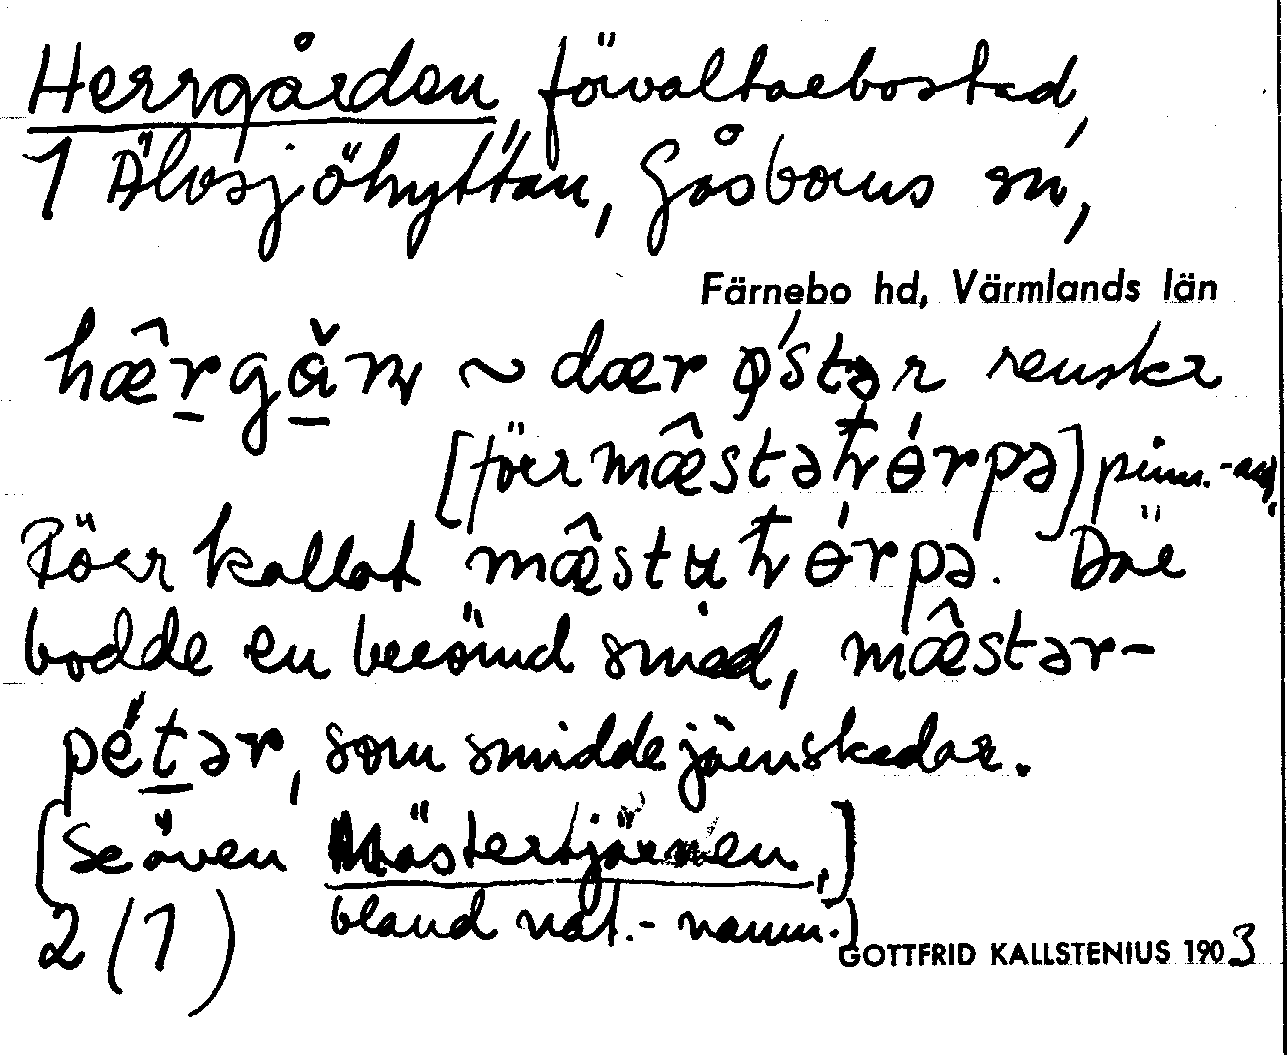 Herrgården, förvaltarbostad,
1 Älvsjöhyttan, Gåsborns sn,
Färnebo hd, Värmlands län
hæ̂rgǎɳ ~ dær ǿstər renskr
[förr mæ̂stəʈɵ́rpə]
Förr kallat mæ̂stuʈɵ́rpə. Där
bodde en berömd smed, mæ̂stər-
pétər, som smidde järnskedar.
[Se även Mästertjärnen,]
bland nat.-namn.]
2 (1)
GOTTFRID KALLSTENIUS 1903